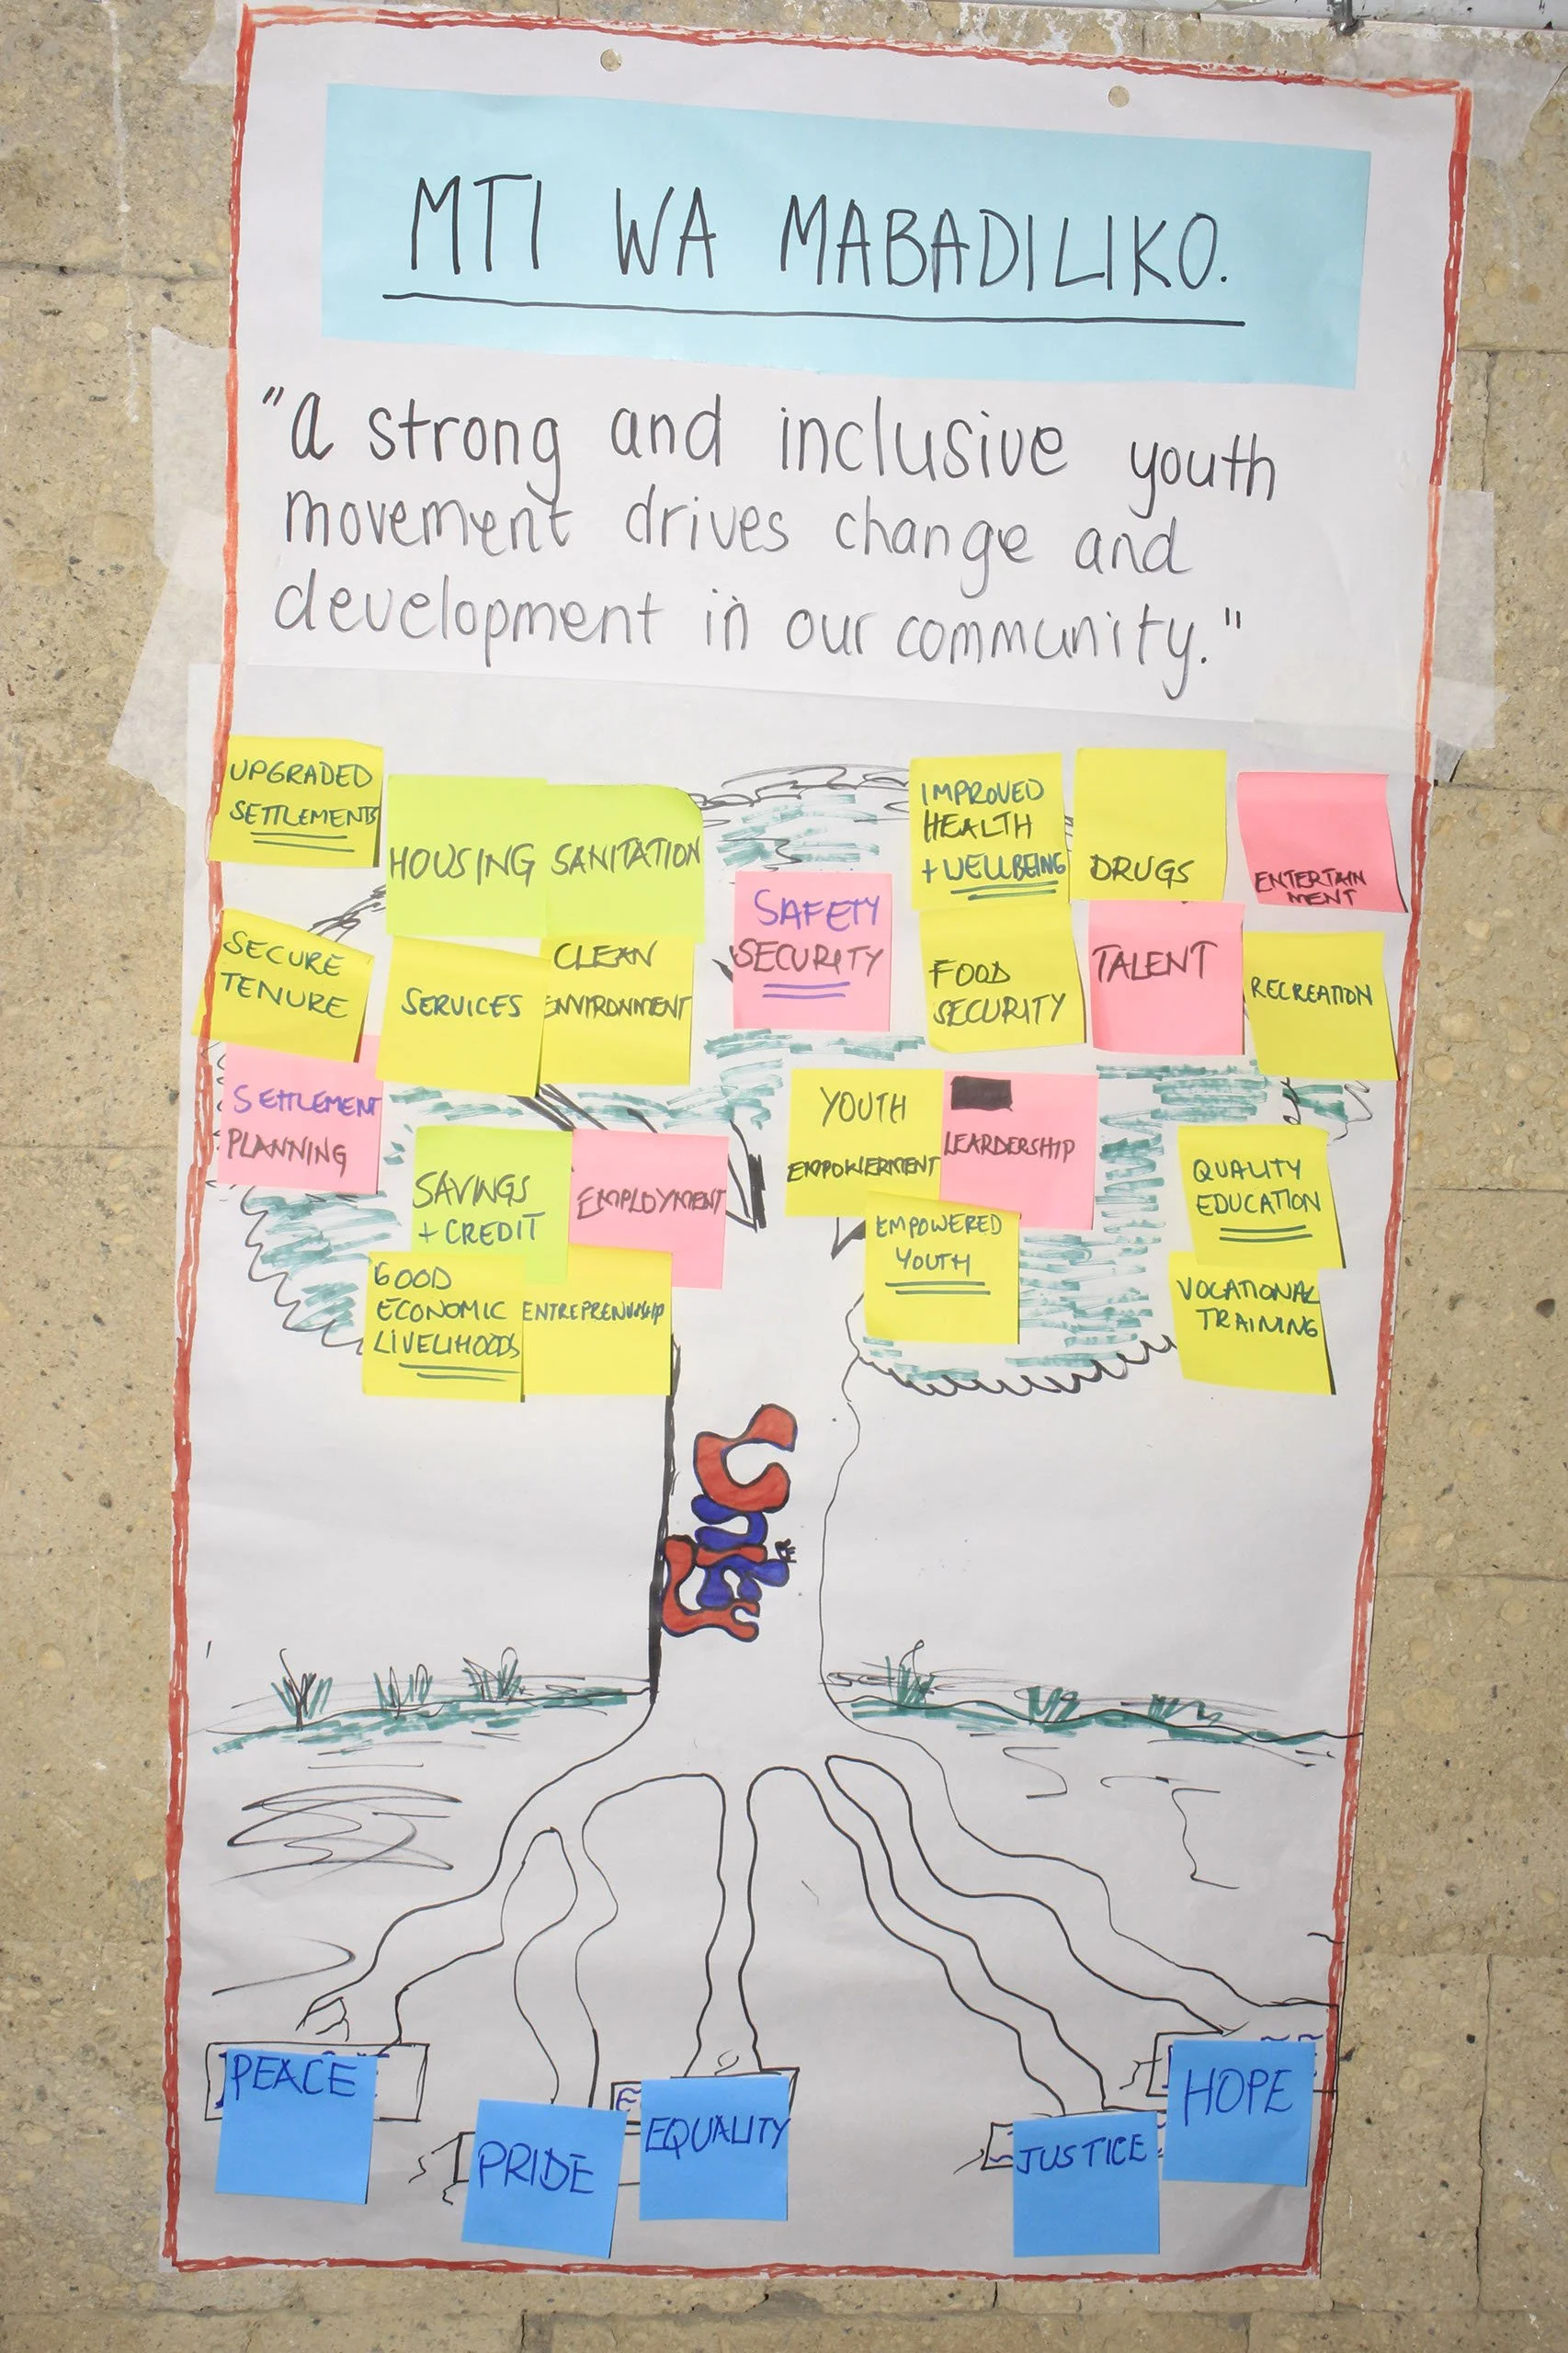 MTI WA MABADILIKO.
"A strong and inclusive youth
movement drives change and
development in our community."
UPGRADED
SETTLEMENTS
HOUSING
SANITATION
IMPROVED
HEALTH
+ WELLBEING
DRUGS
ENTERTAIN
MENT
SECURE
TENURE
SERVICES
CLEAN
ENVIRONMENT
SAFETY
SECURITY
FOOD
SECURITY
TALENT
RECREATION
SETTLEMENT
PLANNING
SAVINGS
+ CREDIT
EMPLOYMENT
YOUTH
EMPOWERMENT
LEARDERSHIP
QUALITY
EDUCATION
GOOD
ECONOMIC
LIVELIHOODS
ENTREPRENUSHIP
EMPOWERED
YOUTH
VOCATIONAL
TRAINING
Unity
PEACE
PRIDE
EQUALITY
JUSTICE
HOPE